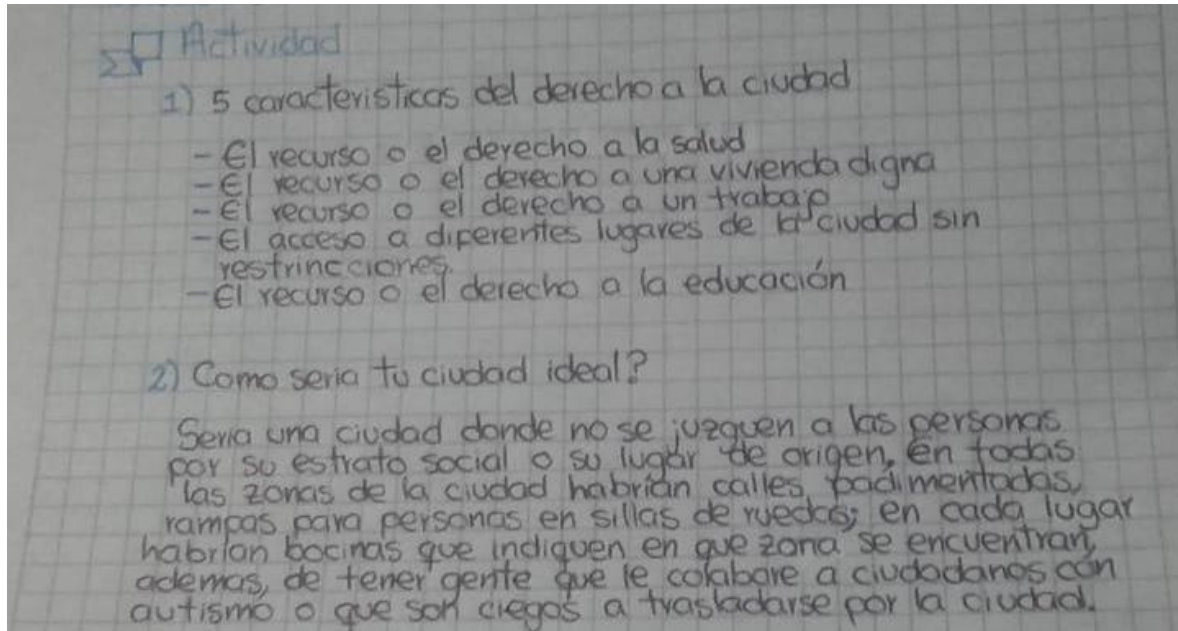 Actividad
1) 5 caracteristicas del derecho a la ciudad
- El recurso o el derecho a la salud
- El recurso o el derecho a una vivienda digna
- El recurso o el derecho a un trabajo
- El acceso a diferentes lugares de la ciudad sin
restrincciones.
- El recurso o el derecho a la educación
2) Como seria tu ciudad ideal?
Seria una ciudad donde no se juzguen a las personas
por su estrato social o su lugar de origen, en todas
las zonas de la ciudad habrían calles padimentadas,
rampas para personas en sillas de ruedas; en cada lugar
habrían bocinas que indiquen en que zona se encuentran,
ademas, de tener gente que le colabore a ciudadanos con
autismo o que son ciegos a trasladarse por la ciudad.